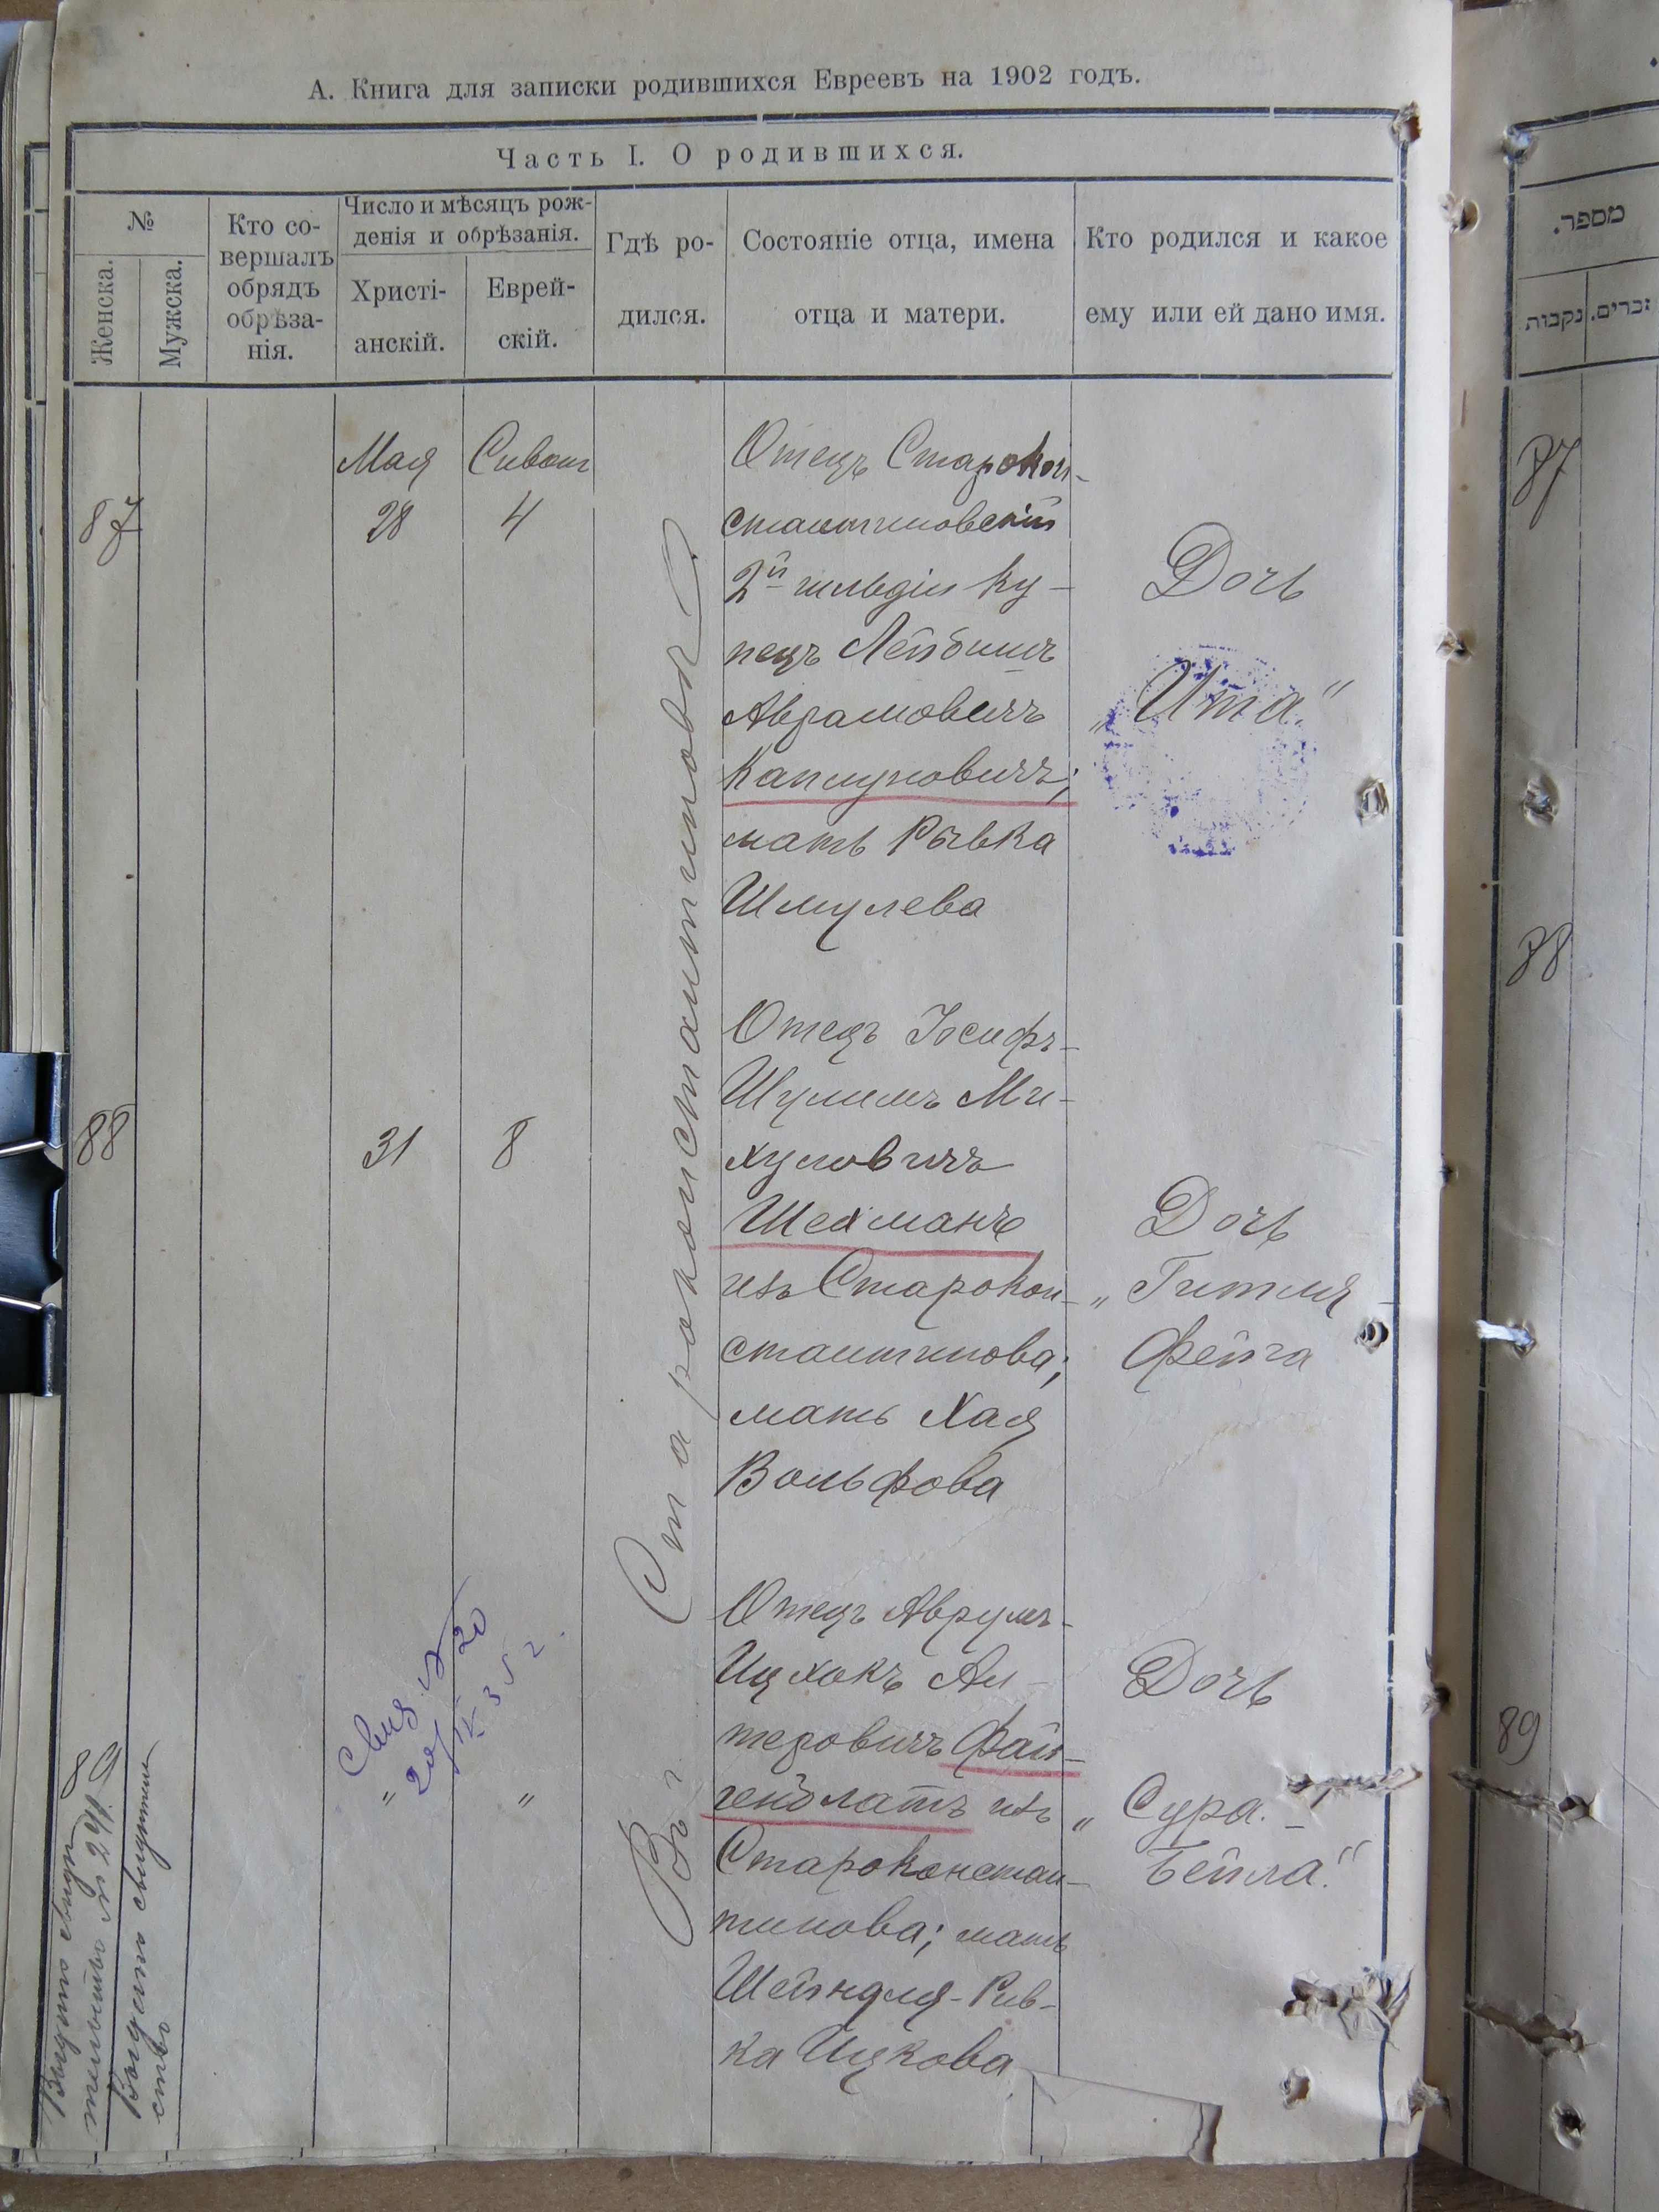 А. Книга для записки родившихся Евреевъ на 1902 годъ.
Часть I. О родившихся.
№
Женска.
Мужска.
Кто со-
вершалъ
обрядъ
обрѣза-
нія.
Число и мѣсяцъ рож-
денія и обрѣзанія.
Христі-
анскій.
Еврей-
скій.
Гдѣ ро-
дился.
Состояніе отца, имена
отца и матери.
Кто родился и какое
ему или ей дано имя.
87
Мая
28
Сиван
4
Въ г. Староконстантиновѣ
Отецъ Старокон-
стантиновскій
2й гильдіи ку-
пецъ Лейбишъ
Аврамовичъ
Каплуновичъ;
мать Рывка
Шмулева
Дочь
„Ита."
88
31
8
Отецъ Іосифъ-
Шулимъ Ми-
хуновичъ
Шехманъ
изъ Старокон-
стантинова;
мать Хая
Вольфова
Дочь
„Гитля-
Фейга
89
"
"
Свид. № 20
20/IV 35 г.
Отецъ Аврумъ-
Ицхокъ Ал-
теровичъ Фай-
генблатъ изъ
Староконстан-
тинова; мать
Шейндля-Рив-
ка Ицкова
Дочь
„Сура-
Бейла."
Выдано свидѣ
тельство № 241.
Выдано свидѣтель
ство
מספר.
נקבות
זכרים.
87
88
89